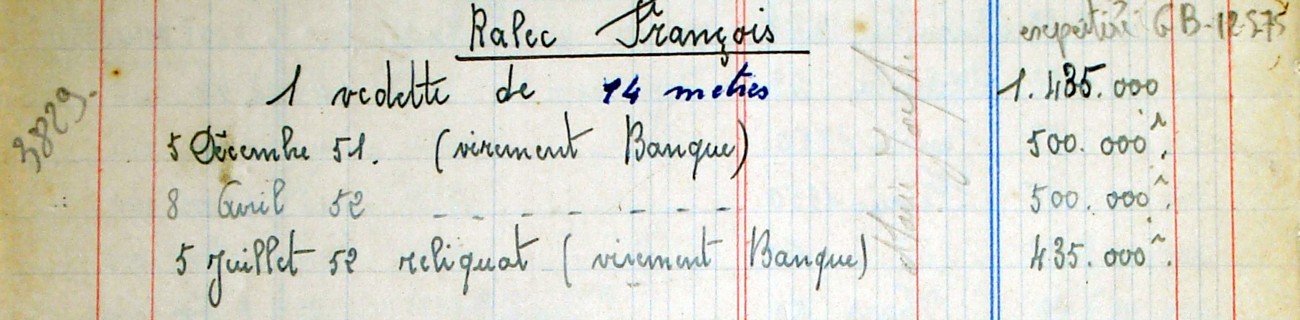 Ralec François
1 vedette de 14 metres 1.435.000
5 Décembre 51. (virement Banque) 500.000
8 Avril 52 - - - - - - - 500.000
5 Juillet 52 reliquat (virement Banque) 435.000
3829.